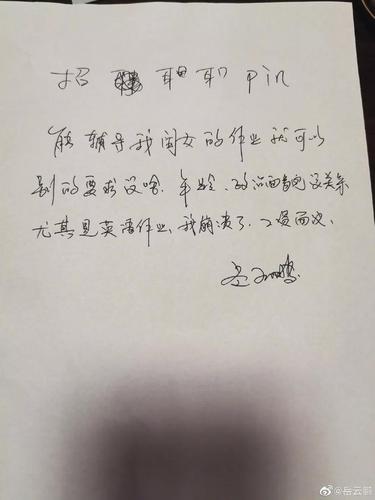 招 职 pin
能辅导我闺女的作业就可以
别的要求没啥.年龄.政治面貌没关系
尤其是英语作业、我崩溃了.工资面议.
岳云鹏
@岳云鹏